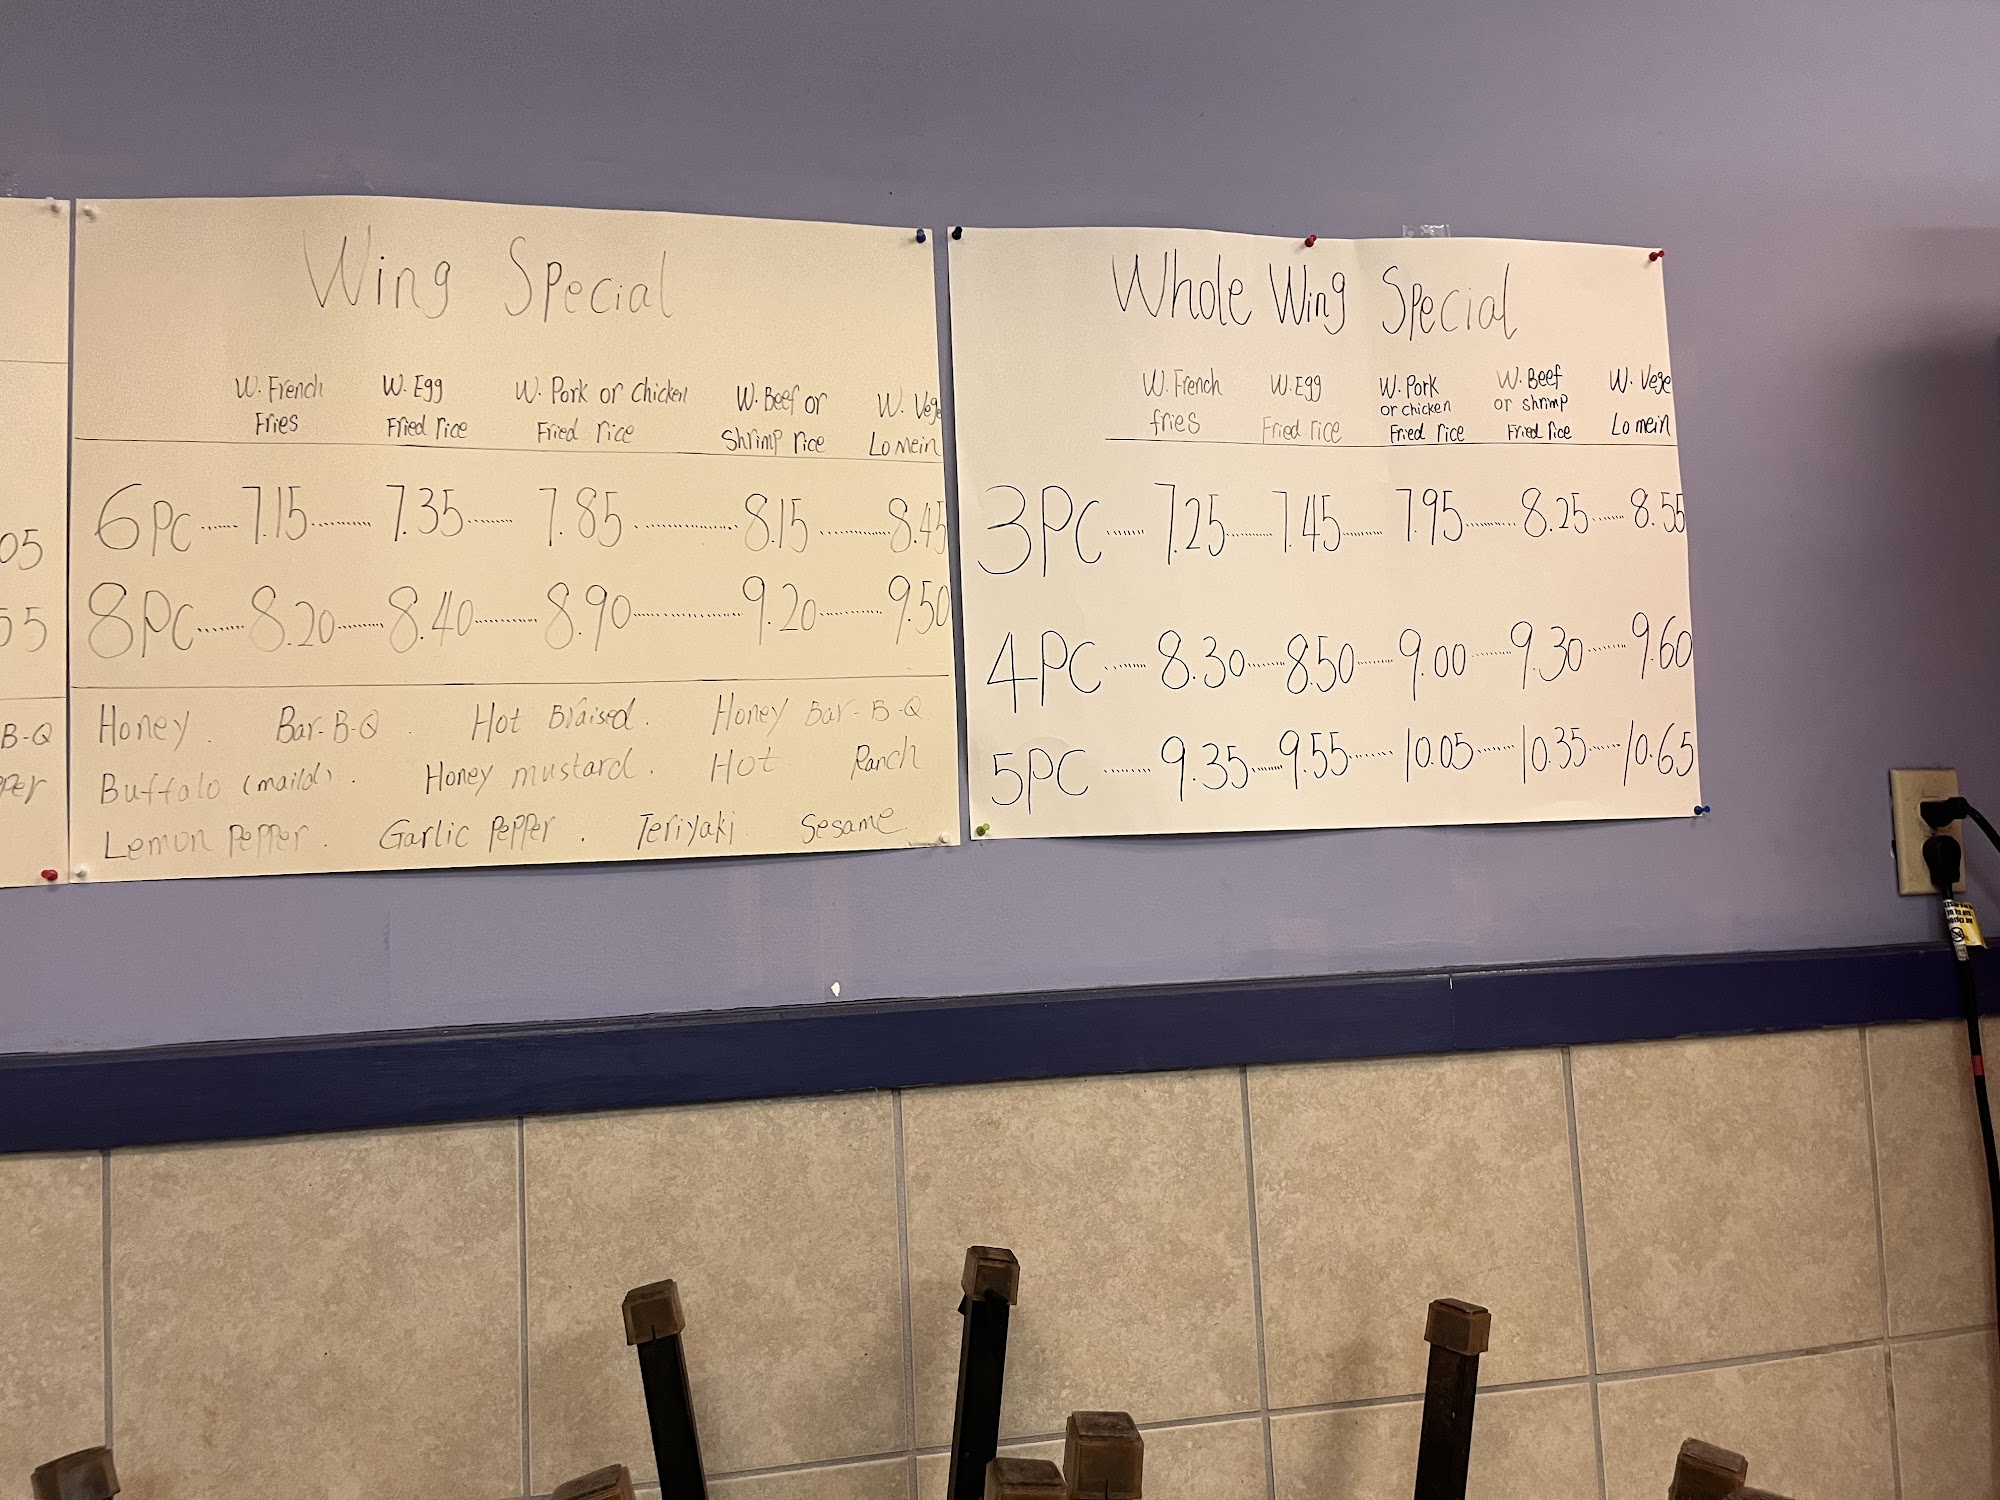 05
55
B-Q
per
Wing Special
W. French Fries
W. Egg Fried rice
W. Pork or Chicken Fried rice
W. Beef or Shrimp rice
W. Vege Lo mein
6PC ...... 7.15 ...... 7.35 ...... 7.85 ...... 8.15 ...... 8.45
8PC ...... 8.20 ...... 8.40 ...... 8.90 ...... 9.20 ...... 9.50
Honey . Bar-B-Q . Hot Braised . Honey Bar-B-Q
Buffalo (maild) . Honey mustard . Hot Ranch
Lemon Pepper . Garlic Pepper . Teriyaki . Sesame
Whole Wing Special
W. French fries
W. Egg Fried rice
W. Pork or chicken Fried rice
W. Beef or shrimp Fried rice
W. Vege Lo mein
3PC ...... 7.25 ...... 7.45 ...... 7.95 ...... 8.25 ...... 8.55
4PC ...... 8.30 ...... 8.50 ...... 9.00 ...... 9.30 ...... 9.60
5PC ...... 9.35 ...... 9.55 ...... 10.05 ...... 10.35 ...... 10.65